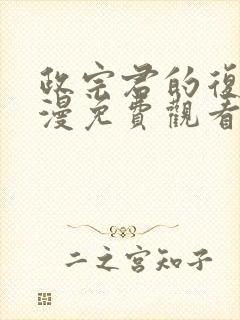 政宗君的復
漫免費觀看
二之宮知子